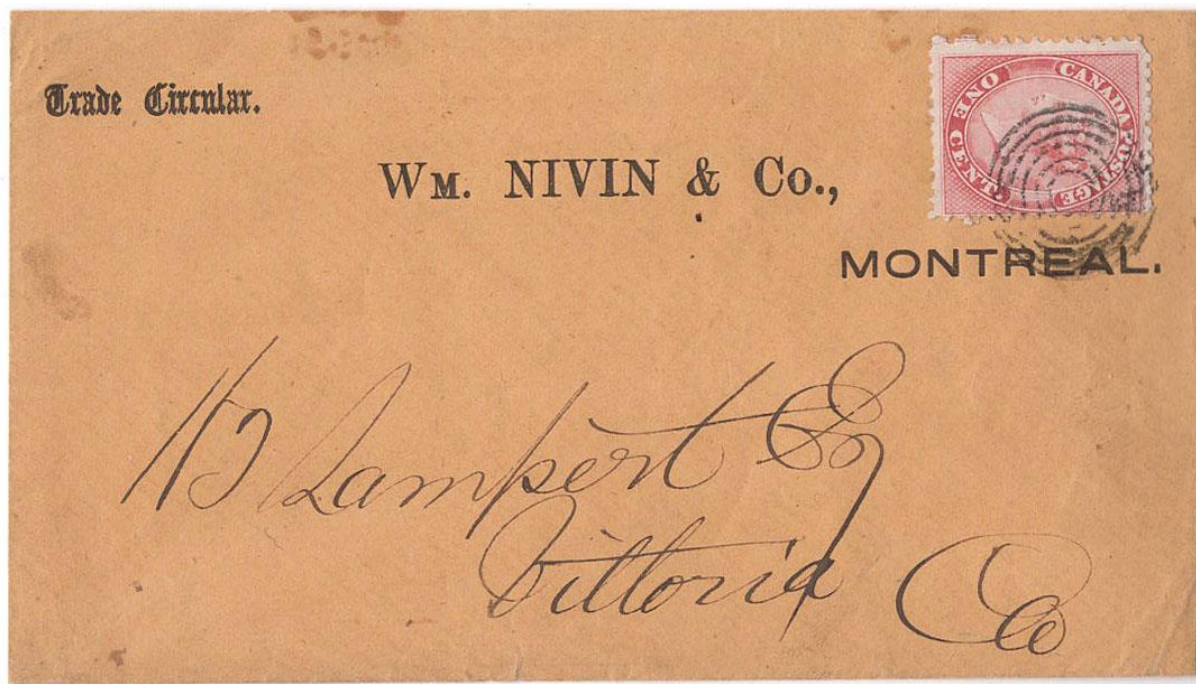 Trade Circular.
CANADA POSTAGE
ONE CENT
WM. NIVIN & Co.,
MONTREAL.
Lampert Esq
Vittoria